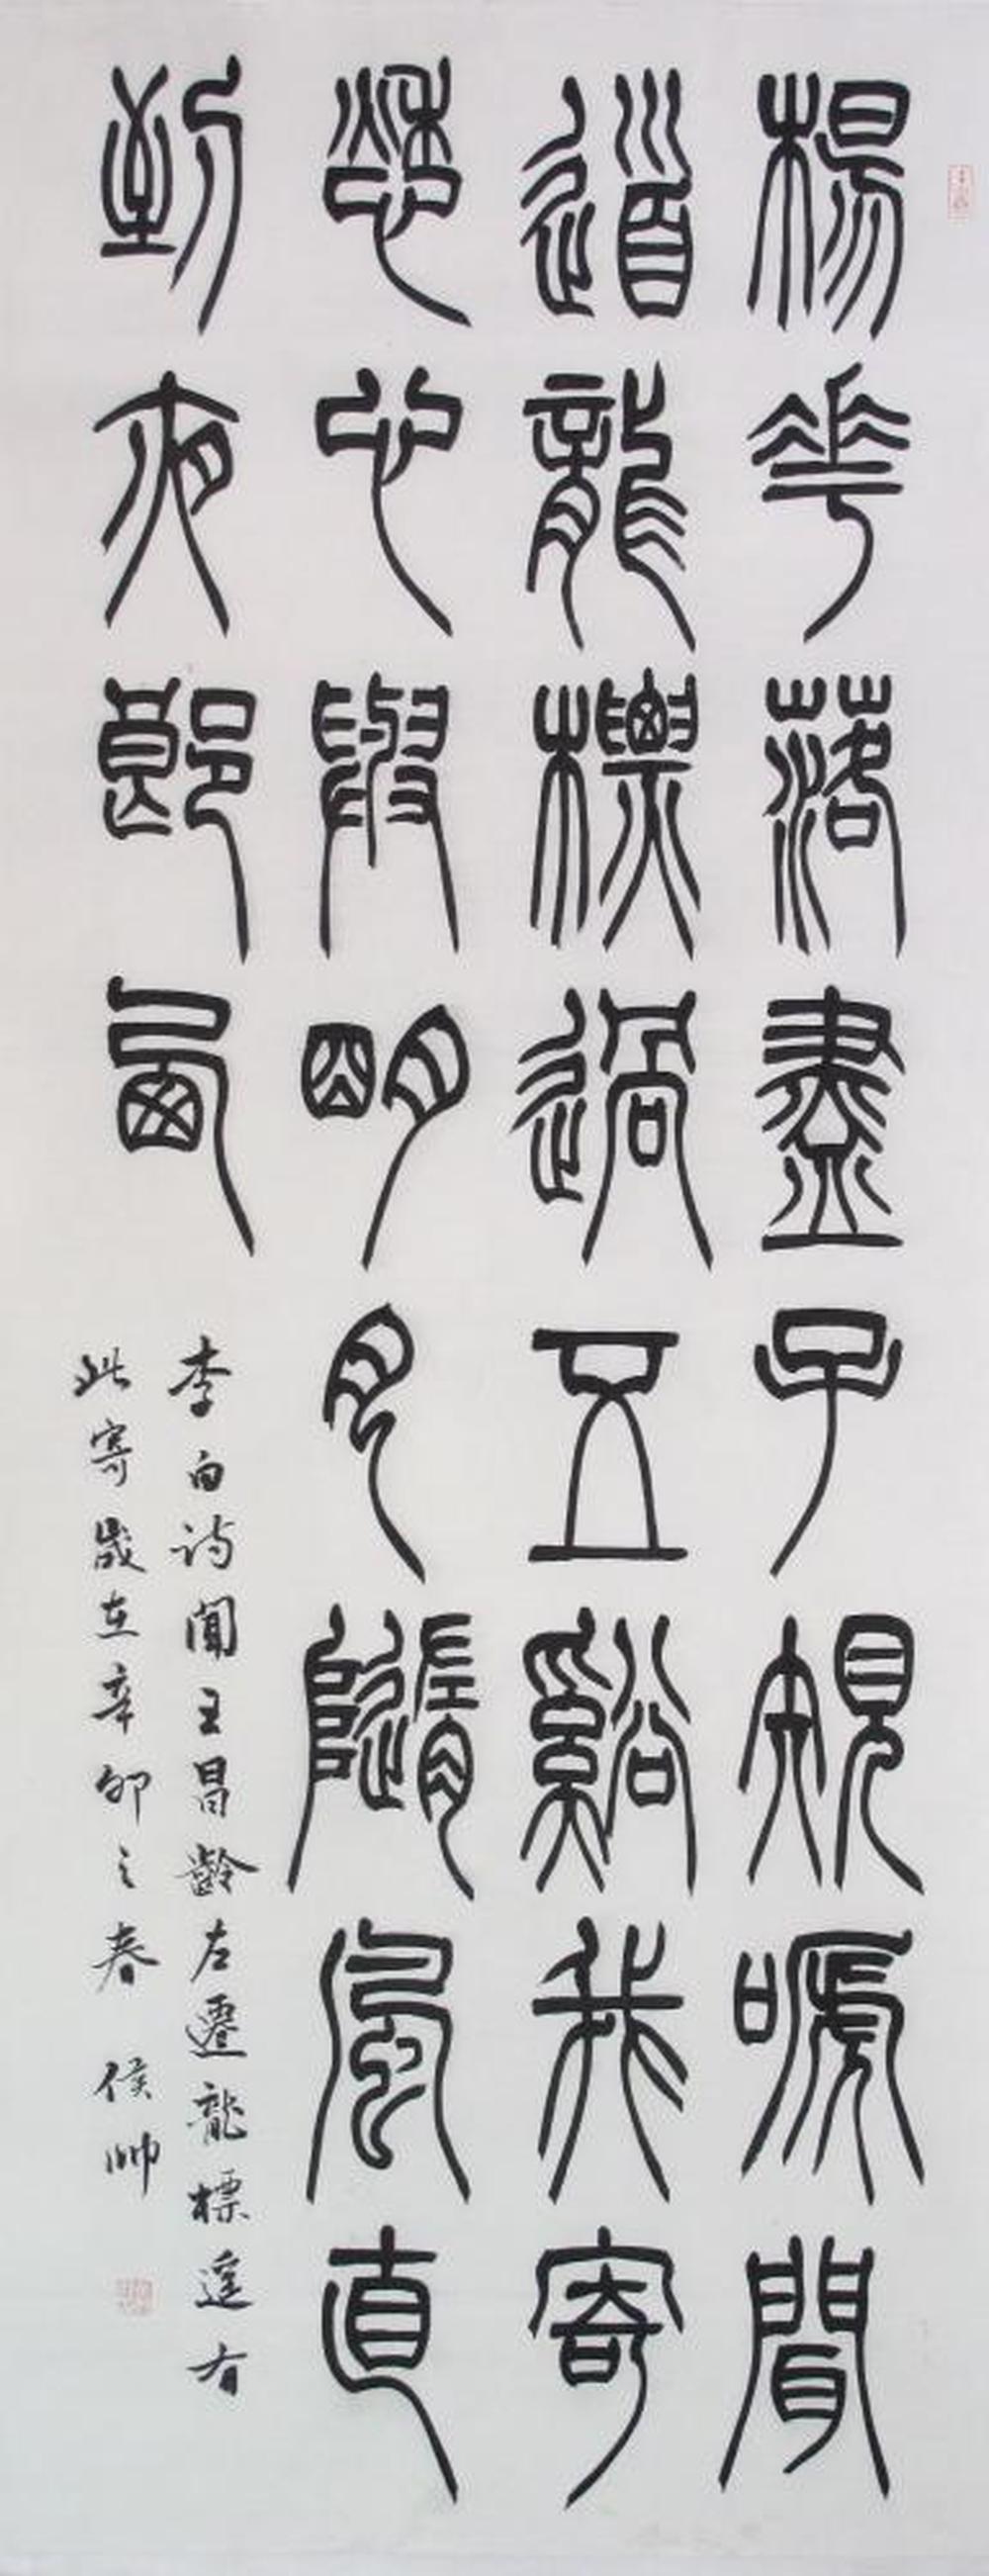 楊花落盡子規嗁聞
道龍標過五谿我寄
愁心與明月隨風直
到夜郎西
李白詩聞王昌齡左遷龍標遥有
此寄歲在辛卯之春 侯帥